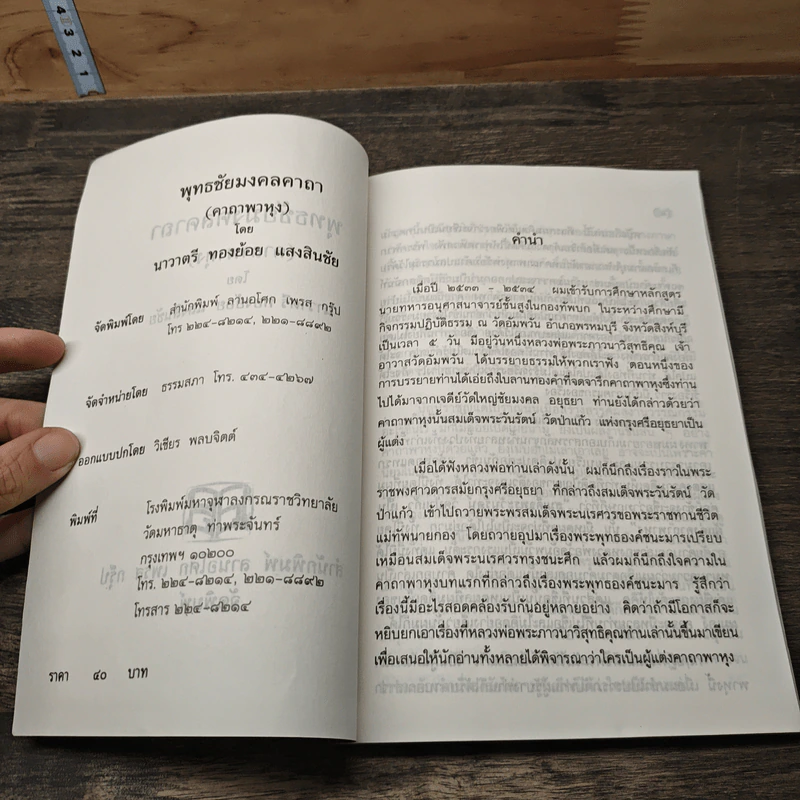 4
3
2
1
พุทธชัยมงคลคาถา
(คาถาพาหุง)
โดย
นาวาตรี ทองย้อย แสงสินชัย
จัดพิมพ์โดย สำนักพิมพ์ ลานอโศก เพรส กรุ๊ป
โทร ๒๒๔-๘๒๑๔, ๒๒๑-๘๘๙๒
จัดจำหน่ายโดย ธรรมสภา โทร. ๔๓๔-๔๒๖๗
ออกแบบปกโดย วิเชียร พลบจิตต์
พิมพ์ที่ โรงพิมพ์มหาจุฬาลงกรณราชวิทยาลัย
วัดมหาธาตุ ท่าพระจันทร์
กรุงเทพฯ ๑๐๒๐๐
โทร. ๒๒๔-๘๒๑๔, ๒๒๑-๘๘๙๒
โทรสาร ๒๒๔-๘๒๑๔
ราคา ๔๐ บาท
คำนำ
เมื่อปี ๒๕๓๓ - ๒๕๓๔ ผมเข้ารับการศึกษาหลักสูตร
นายทหารอนุศาสนาจารย์ชั้นสูงในกองทัพบก ในระหว่างศึกษามี
กิจกรรมปฏิบัติธรรม ณ วัดอัมพวัน อำเภอพรหมบุรี จังหวัดสิงห์บุรี
เป็นเวลา ๕ วัน มีอยู่วันหนึ่งหลวงพ่อพระภาวนาวิสุทธิคุณ เจ้า
อาวาสวัดอัมพวัน ได้บรรยายธรรมให้พวกเราฟัง ตอนหนึ่งของ
การบรรยายท่านได้เอ่ยถึงใบลานทองคำที่จดจารึกคาถาพาหุงซึ่งท่าน
ไปได้มาจากเจดีย์วัดใหญ่ชัยมงคล อยุธยา ท่านยังได้กล่าวด้วยว่า
คาถาพาหุงนั้นสมเด็จพระวันรัตน์ วัดป่าแก้ว แห่งกรุงศรีอยุธยาเป็น
ผู้แต่ง
เมื่อได้ฟังหลวงพ่อท่านเล่าดังนั้น ผมก็นึกถึงเรื่องราวในพระ
ราชพงศาวดารสมัยกรุงศรีอยุธยา ที่กล่าวถึงสมเด็จพระวันรัตน์ วัด
ป่าแก้ว เข้าไปถวายพระพรสมเด็จพระนเรศวรขอพระราชทานชีวิต
แม่ทัพนายกอง โดยถวายอุปมาเรื่องพระพุทธองค์ชนะมารเปรียบ
เหมือนสมเด็จพระนเรศวรทรงชนะศึก แล้วผมก็นึกถึงใจความใน
คาถาพาหุงบทแรกที่กล่าวถึงเรื่องพระพุทธองค์ชนะมาร รู้สึกว่า
เรื่องนี้มีอะไรสอดคล้องรับกันอยู่หลายอย่าง คิดว่าถ้ามีโอกาสก็จะ
หยิบยกเอาเรื่องที่หลวงพ่อพระภาวนาวิสุทธิคุณท่านเล่านั้นขึ้นมาเขียน
เพื่อเสนอให้นักอ่านทั้งหลายได้พิจารณาว่าใครเป็นผู้แต่งคาถาพาหุง